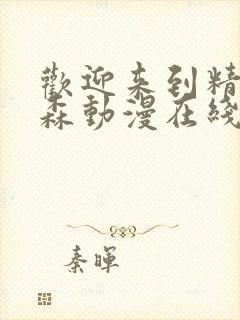 歡迎来到精
森動漫在綫
秦暉